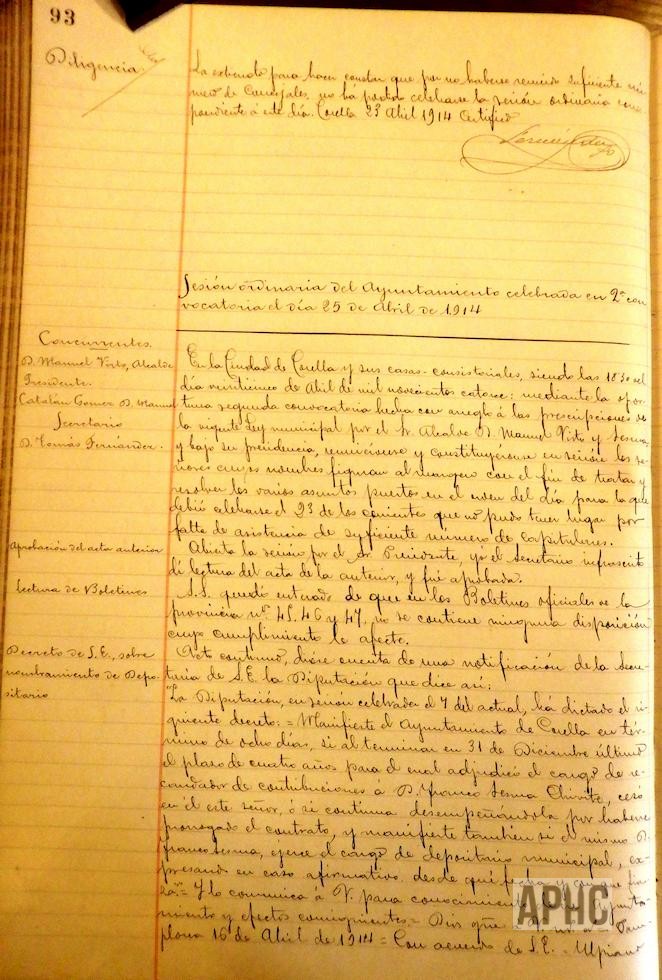 93
Diligencia
La extiendo para hacer constar que por no haberse reunido suficiente nú-
mero de Concejales, no ha podido celebrarse la sesión ordinaria corres-
pondiente á este día. Corella 23 Abril 1914 Certifico
Sesión ordinaria del Ayuntamiento celebrada en 2ª con
vocatoria el día 25 de Abril de 1914
Concurrentes.
D. Manuel Virto, Alcalde
Presidente.
Catalán Gomez D. Manuel
Secretario
D. Tomás Fernández.
En la Ciudad de Corella y sus casas-consistoriales, siendo las 18'30 del
día veinticinco de Abril de mil novecientos catorce: mediante la opor-
tuna segunda convocatoria hecha con arreglo á las prescripciones de
la vigente Ley municipal por el Sr. Alcalde D. Manuel Virto y Sesma,
y bajo su presidencia, reuniéronse y constituyéronse en sesión los se-
ñores cuyos nombres figuran al margen con el fin de tratar y
resolver los varios asuntos puestos en el orden del día para la que
debió celebrarse el 23 de los corrientes que no pudo tener lugar por
falta de asistencia de suficiente número de capitulares.
Aprobación del acta anterior
Abierta la sesión por el Sr. Presidente, yo el Secretario infrascrito
di lectura del acta de la anterior, y fué aprobada.
Lectura de Boletines
S.S. quedó enterado de que en los Boletines oficiales de la
provincia nos. 45, 46 y 47, no se contiene ninguna disposición
cuyo cumplimiento le afecte.
Decreto de S.E., sobre
nombramiento de Depo-
sitario
Acto continuo, dióse cuenta de una notificación de la Secre-
taría de S.E. la Diputación que dice así:
"La Diputación, en sesión celebrada el 7 del actual, há dictado el si-
guiente decreto: = Manifieste el Ayuntamiento de Corella en tér-
mino de ocho días, si al terminar en 31 de Diciembre último
el plazo de cuatro años para el cual adjudicó el cargo de re-
caudador de contribuciones á D. Franco Sesma Chivite, cesó
en él este señor, ó si continúa desempeñándola por haberse
prorrogado el contrato, y manifieste también si el mismo D.
Franco Sesma, ejerce el cargo de depositario municipal, ex-
presando en caso afirmativo, desde qué fecha y en qué fian-
za." = Y lo comunico á V. para conocimiento
miento y efectos consiguientes = Dios gue. á
plona 16 de Abril de 1914 = Con acuerdo de S.E. = Ulpiano
APHC